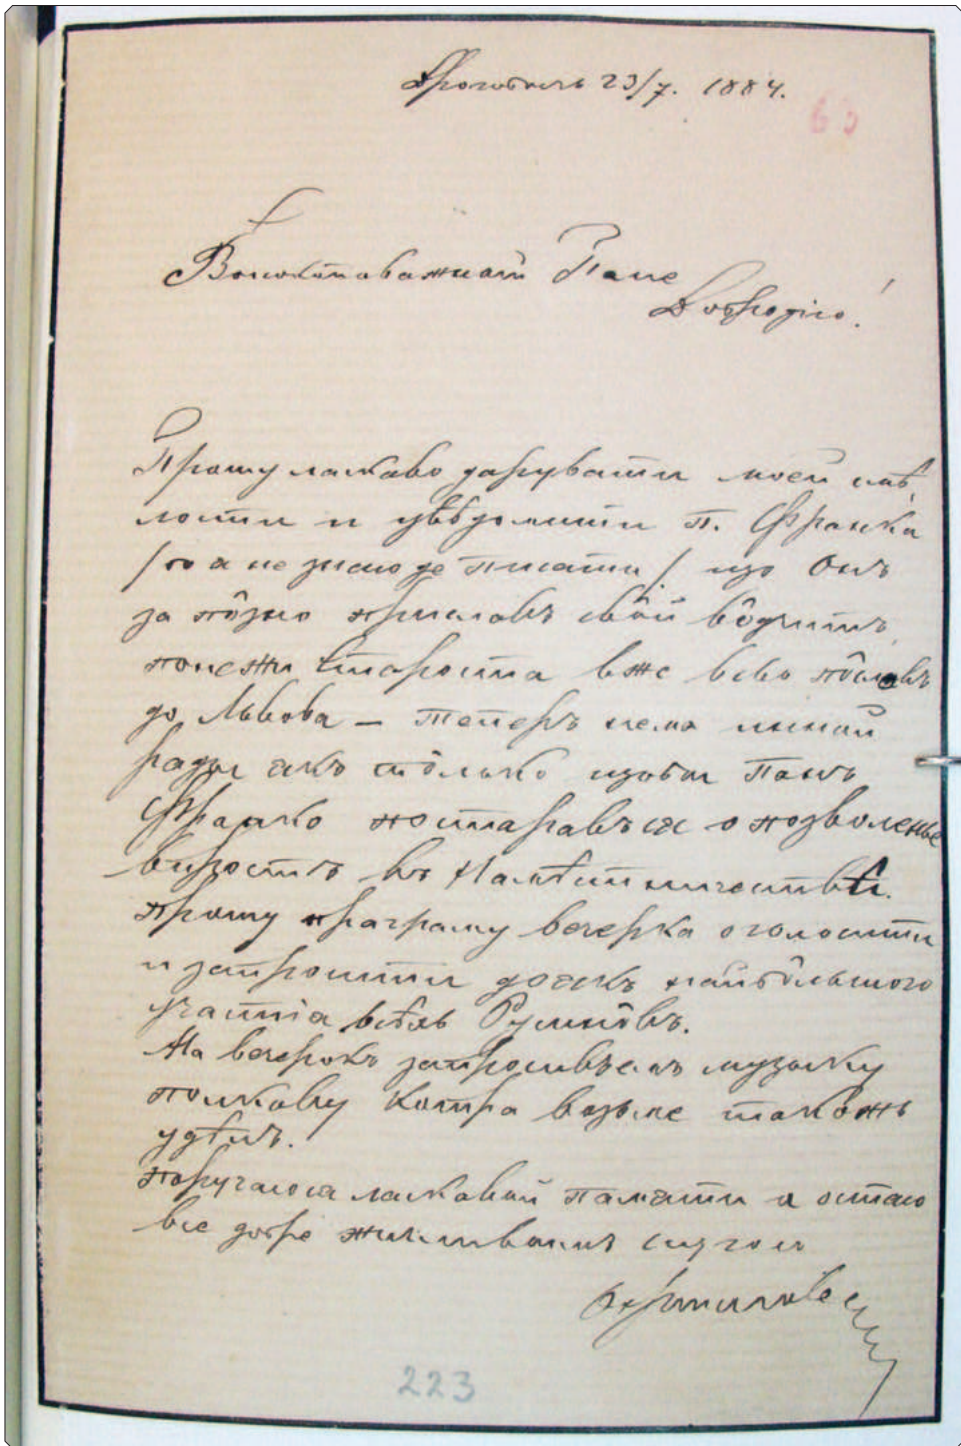 Дрогобычь 23/7. 1884.
63
Высокоповажный Пане
Добродію!
Прошу ласкаво даровати моей смѣ
лости и увѣдомити п. Франка
/бо я не знаю де писати/ що Онъ
за пôзно приславъ свôй вôдчитъ,
понежи Староста вже всьо пôславъ
до Львова — теперъ нема иншой
рады якъ тôлько щобы Панъ
Франко постаравъ ся о позволенье
въ Намѣстничествѣ.
прошу програму вечерка оголосити
и запросити до якъ найбôльшого
участія всѣхъ Русинôвъ.
На вечерокъ запросивъ емъ музыку
полкову котра возьме такожъ
удѣлъ.
поручаюся ласкавой памяти а остаю
все добре жичливымъ слугою
223